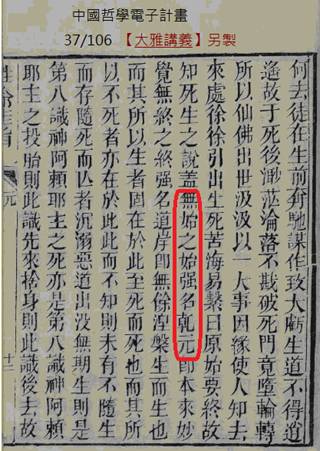 中國哲學電子計畫
37/106 【大雅講義】另製
何去徒在生前奔馳謀作致大虧生道不得道
遙故于死後渺茫淪落不戡破死門竟墮輪轉
所以仙佛出世汲汲以一大事因緣使人知去
來處徐徐引出生死苦海易繫曰原始要終故
知死生之說蓋無始之始强名乾元即本來妙
覺無終之終强名道岸即無餘湼槃生而生也
而其所以生者固在於此死而死也而其所
以不死者亦在於此此而不知則未有不隨生
而存隨死而亡者沉溺惡道出沒無期生則是
第八識神阿賴耶主之死亦是第八識神阿賴
耶主之投胎則此識先來捨身則此識後去故
元
十二